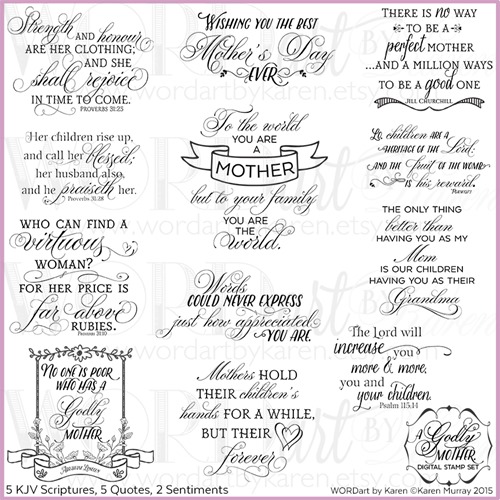 Strength
AND honour
ARE HER CLOTHING;
AND SHE
shall rejoice
IN TIME TO COME.
PROVERBS 31:25
Her children rise up,
and call her blessed;
her husband also,
and he praiseth her.
Proverbs 31:28
WHO CAN FIND A
virtuous
WOMAN?
FOR HER PRICE IS
far above
RUBIES.
Proverbs 31:10
NO ONE IS POOR
WHO HAS A
Godly
MOTHER
ABRAHAM LINCOLN
WISHING YOU THE BEST
Mother's Day
EVER
To the world
YOU ARE
A
MOTHER
but to your family
YOU ARE
THE
World.
Words
COULD NEVER EXPRESS
just how appreciated
YOU ARE.
Mothers HOLD
THEIR children's
hands FOR A WHILE,
BUT THEIR
Forever
THERE IS no WAY
TO BE A
perfect MOTHER
...AND A MILLION WAYS
TO BE A good ONE
JILL CHURCHILL
Lo, children ARE A
HERITAGE OF THE Lord:
AND THE fruit OF THE WOMB
IS his reward.
THE ONLY THING
better than
HAVING YOU AS MY
Mom
IS OUR CHILDREN
HAVING YOU AS THEIR
Grandma
The Lord will
increase you
more & more,
you and
your children.
Psalm 115:14
A Godly
MOTHER
DIGITAL STAMP SET
5 KJV Scriptures, 5 Quotes, 2 Sentiments
WORDart by Karen ©Karen Murray 2015